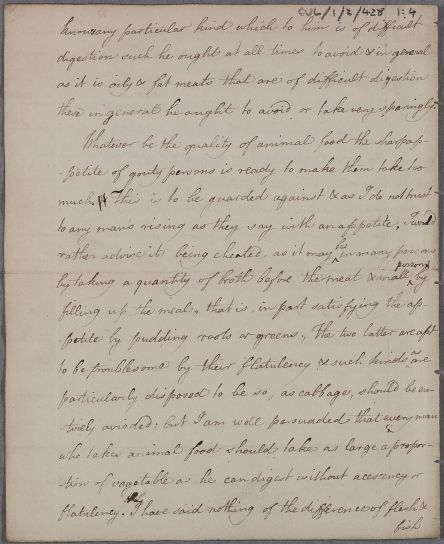 CUL/1/2/428 1:4
knows any particular kind which to him is of difficult
digestion such he ought at all times to avoid & in general
as it is oily & fat meats that are of difficult digestion
these in general he ought to avoid or take very sparingly.
Whatever be the quality of animal food the sharp ap-
-petite of gouty persons is ready to make them take too
much. This is to be guarded against & as I do not trust
to any mans rising as they say with an appetite, I would
rather advise it being cheated, as it may be in many persons
by taking a quantity of broth before the meat & in all persons by
filling up the meal, that is, in part satisfying the ap-
petite by pudding roots or greens, The two latter are apt
to be troublesome by their flatulency & such kinds as are
particularly disposed to be so, as cabbage, should be en-
tirely avoided; but I am well persuaded that every man
who takes animal food should take as large a propor-
-tion of vegetable as he can digest without acescency or
flatulency. I have said nothing of the difference of flesh &
fish